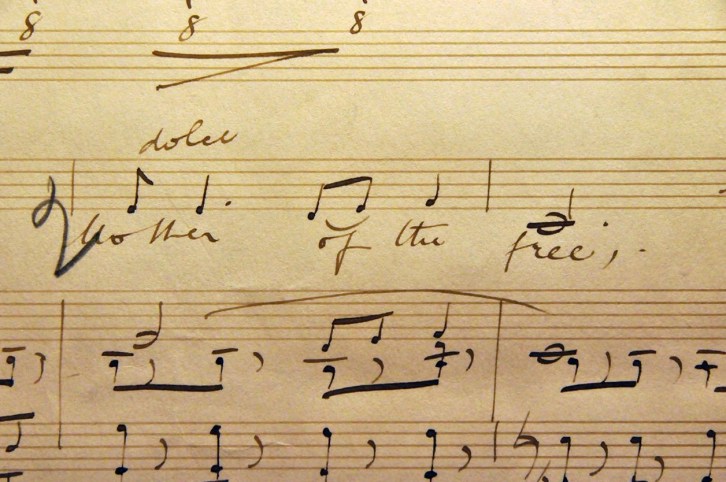 8 8 8
dolce
Mother of the free,